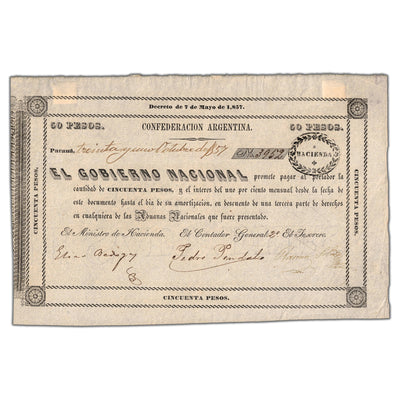 Decreto de 7 de Mayo de 1,857.
50 PESOS. CONFEDERACION ARGENTINA. 50 PESOS.
Paraná, treinta y uno Octubre de 1857 Nº 3952
HACIENDA
EL GOBIERNO NACIONAL promete pagar al portador la
cantidad de CINCUENTA PESOS, y el interes del uno por ciento mensual desde la fecha
de este documento hasta el dia de su amortizacion, en descuento de una tercera parte de derechos
en cualquiera de las Aduanas Nacionales que fuere presentado.
El Ministro de Hacienda. El Contador General 2º El Tesorero
Elias Bedoya Pedro
CINCUENTA PESOS.
CINCUENTA PESOS.
CINCUENTA PESOS.